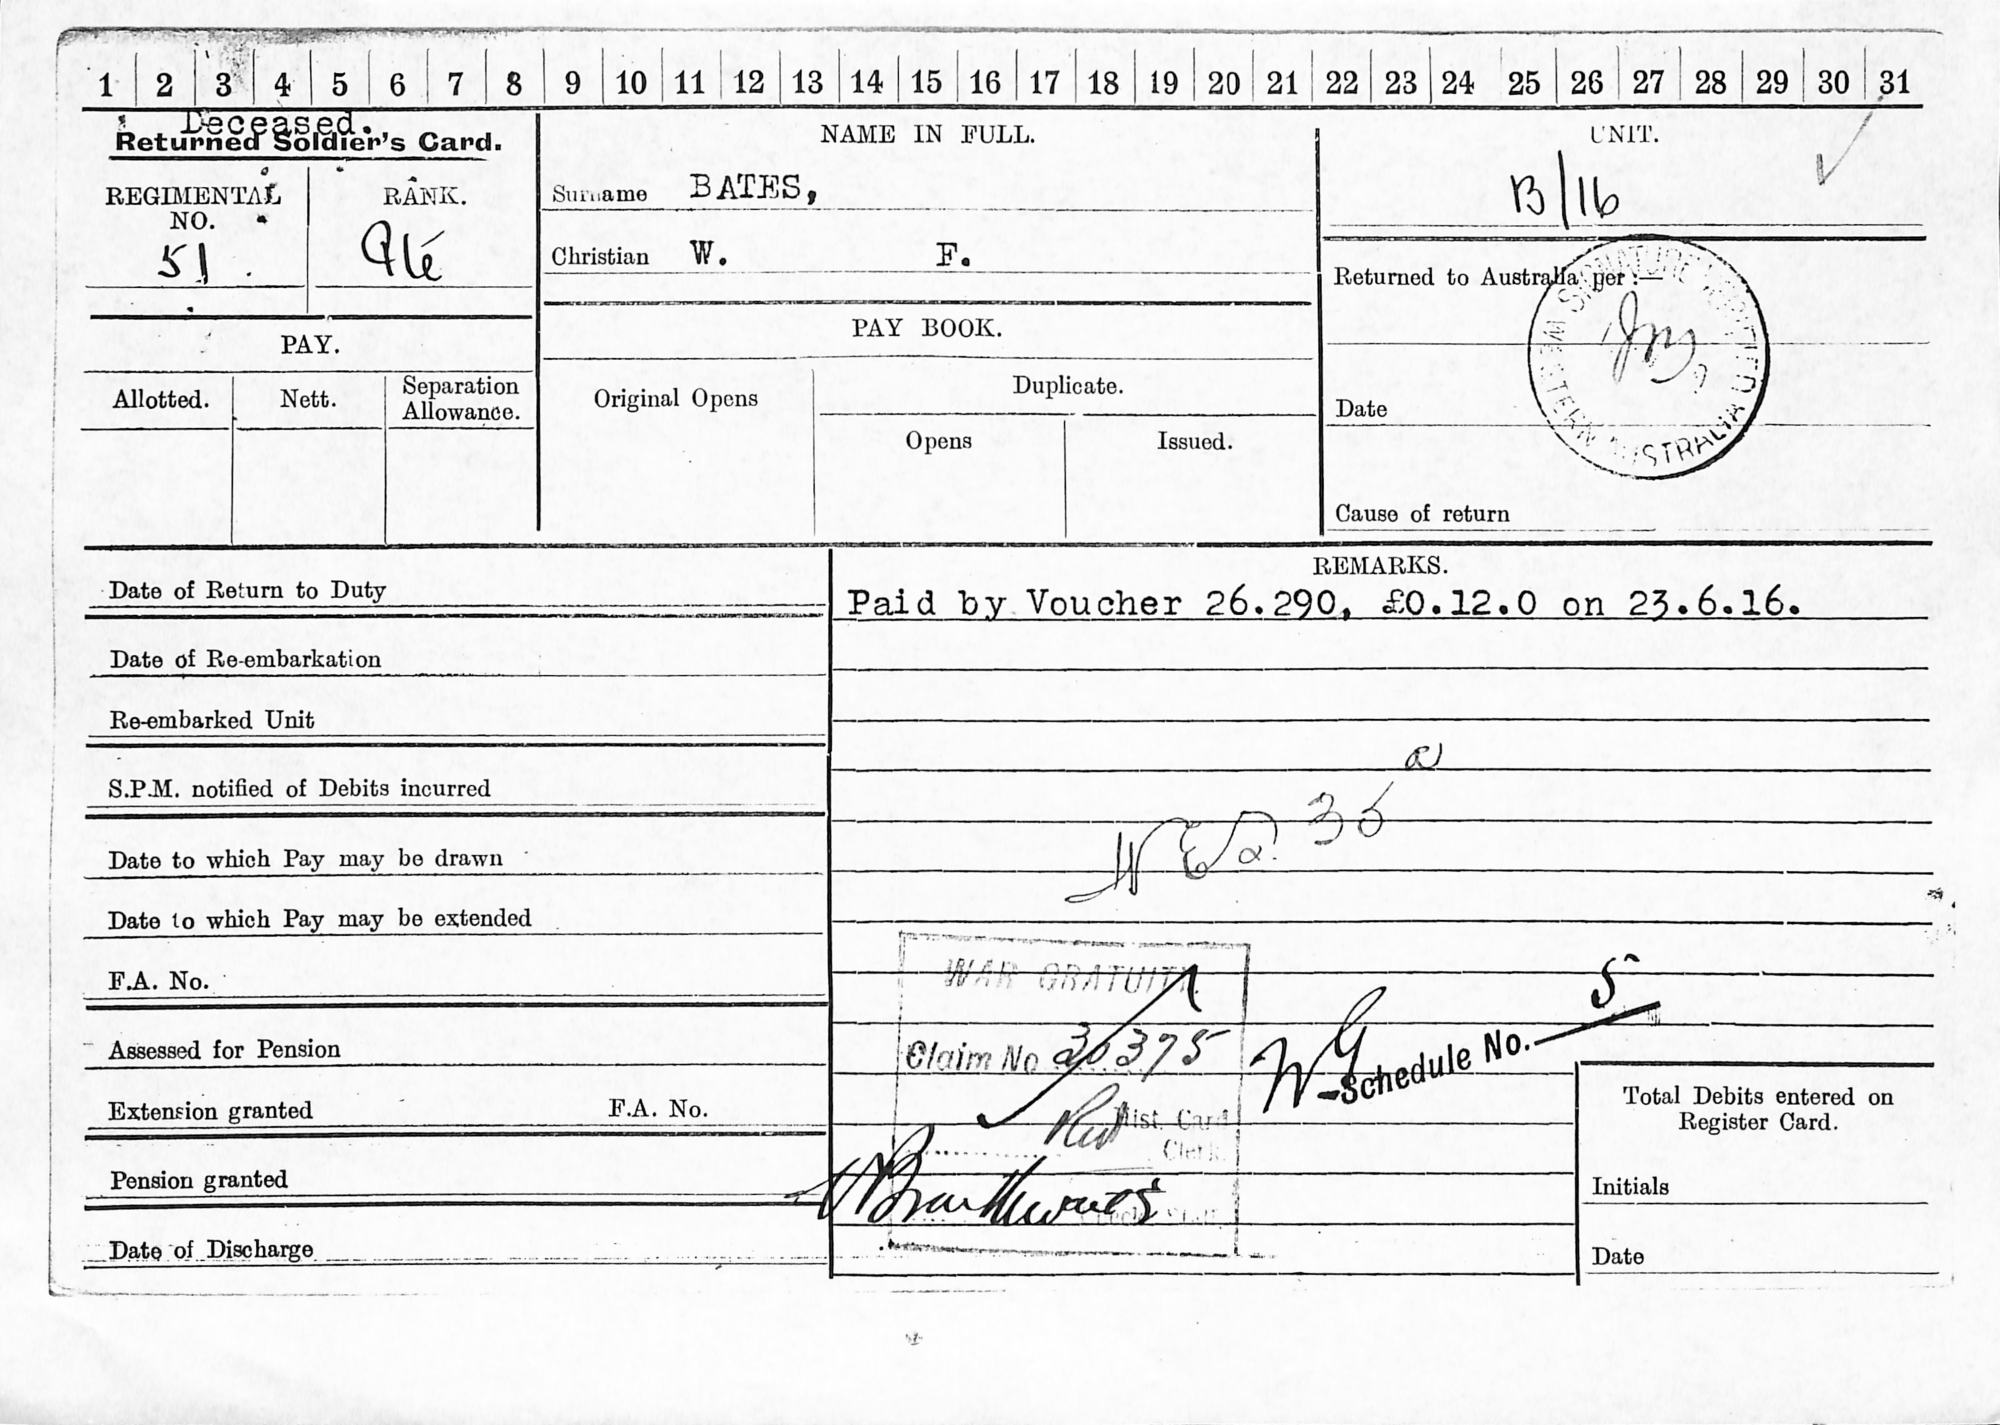 1 2 3 4 5 6 7 8 9 10 11 12 13 14 15 16 17 18 19 20 21 22 23 24 25 26 27 28 29 30 31
Deceased.
Returned Soldier's Card.
REGIMENTAL NO.
51
RANK.
Pte
NAME IN FULL.
Surname BATES,
Christian W. F.
UNIT.
B/16
Returned to Australia per:—
SIGNATURE VERIFIED
WESTERN AUSTRALIA
Date
Cause of return
PAY.
Allotted.
Nett.
Separation Allowance.
PAY BOOK.
Original Opens
Duplicate.
Opens
Issued.
Date of Return to Duty
Date of Re-embarkation
Re-embarked Unit
S.P.M. notified of Debits incurred
Date to which Pay may be drawn
Date to which Pay may be extended
F.A. No.
Assessed for Pension
Extension granted F.A. No.
Pension granted
Date of Discharge
REMARKS.
Paid by Voucher 26.290, £0.12.0 on 23.6.16.
WAR GRATUITY
Claim No 30375
Dist. Card
Clerk.
WG
-Schedule No. 5
Total Debits entered on
Register Card.
Initials
Date